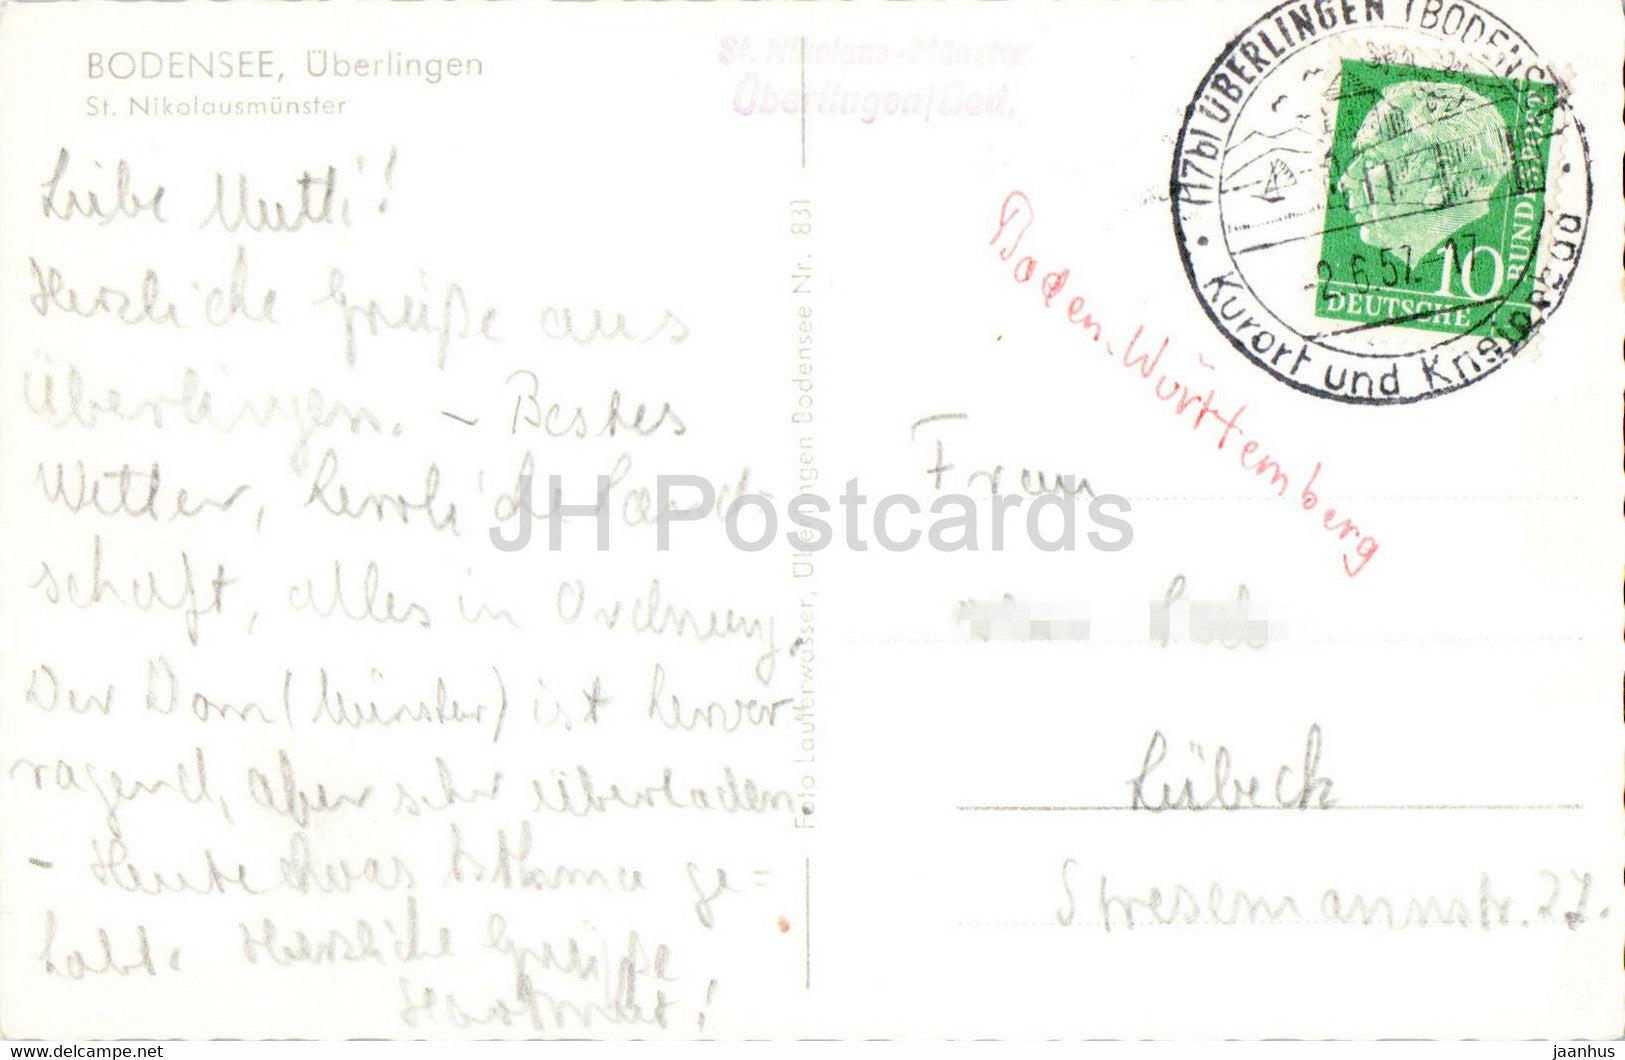 BODENSEE, Überlingen
St. Nikolausmünster
St. Nikolaus-Münster
Überlingen/Bod.
(17b) ÜBERLINGEN (BODENSEE)
Kurort und Kneippbad
-2.6.57.-17
10
DEUTSCHE
BUNDESPOST
Liebe Mutti!
Herzliche Grüße aus
Überlingen. - Bestes
Wetter, herrliche Land-
schaft, alles in Ordnung.
Der Dom (Münster) ist hervor
ragend, aber sehr überladen.
- Heute etwas Asthma ge=
habt. Herzliche Grüße
Hartmut!
Foto Lauterwasser, Überlingen Bodensee Nr. 831
Baden-Württemberg
Frau
Lübeck
Stresemannstr. 27.
JH Postcards
www.delcampe.net
jaanhus